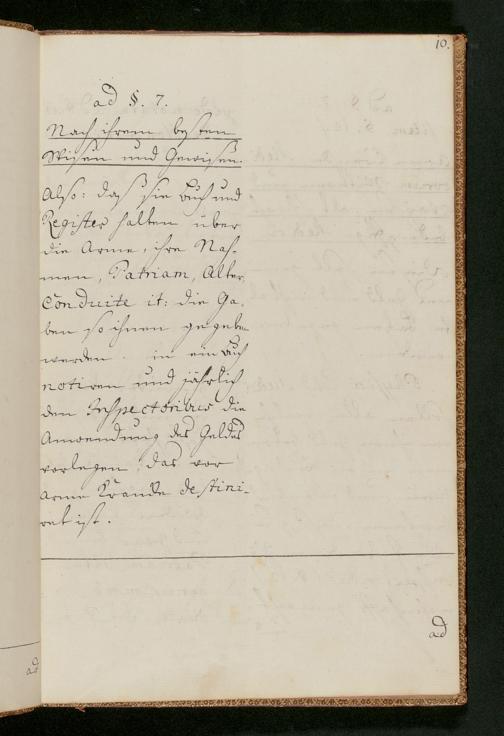 10.
ad §. 7.
Nach ihrem besten
Wißen und Gewißen.
Also: daß sie Buch und
Register halten über
die Arme, ihre Nah-
men, Patriam, Alter,
Conduite it: die Ga-
ben so ihnen gegeben
werden. in ein Buch
notiren und jährlich
den Inspectoribus die
Anwendung des Geldes
vorlegen, das vor
arme Krancke destini-
ret ist.
ad
ad